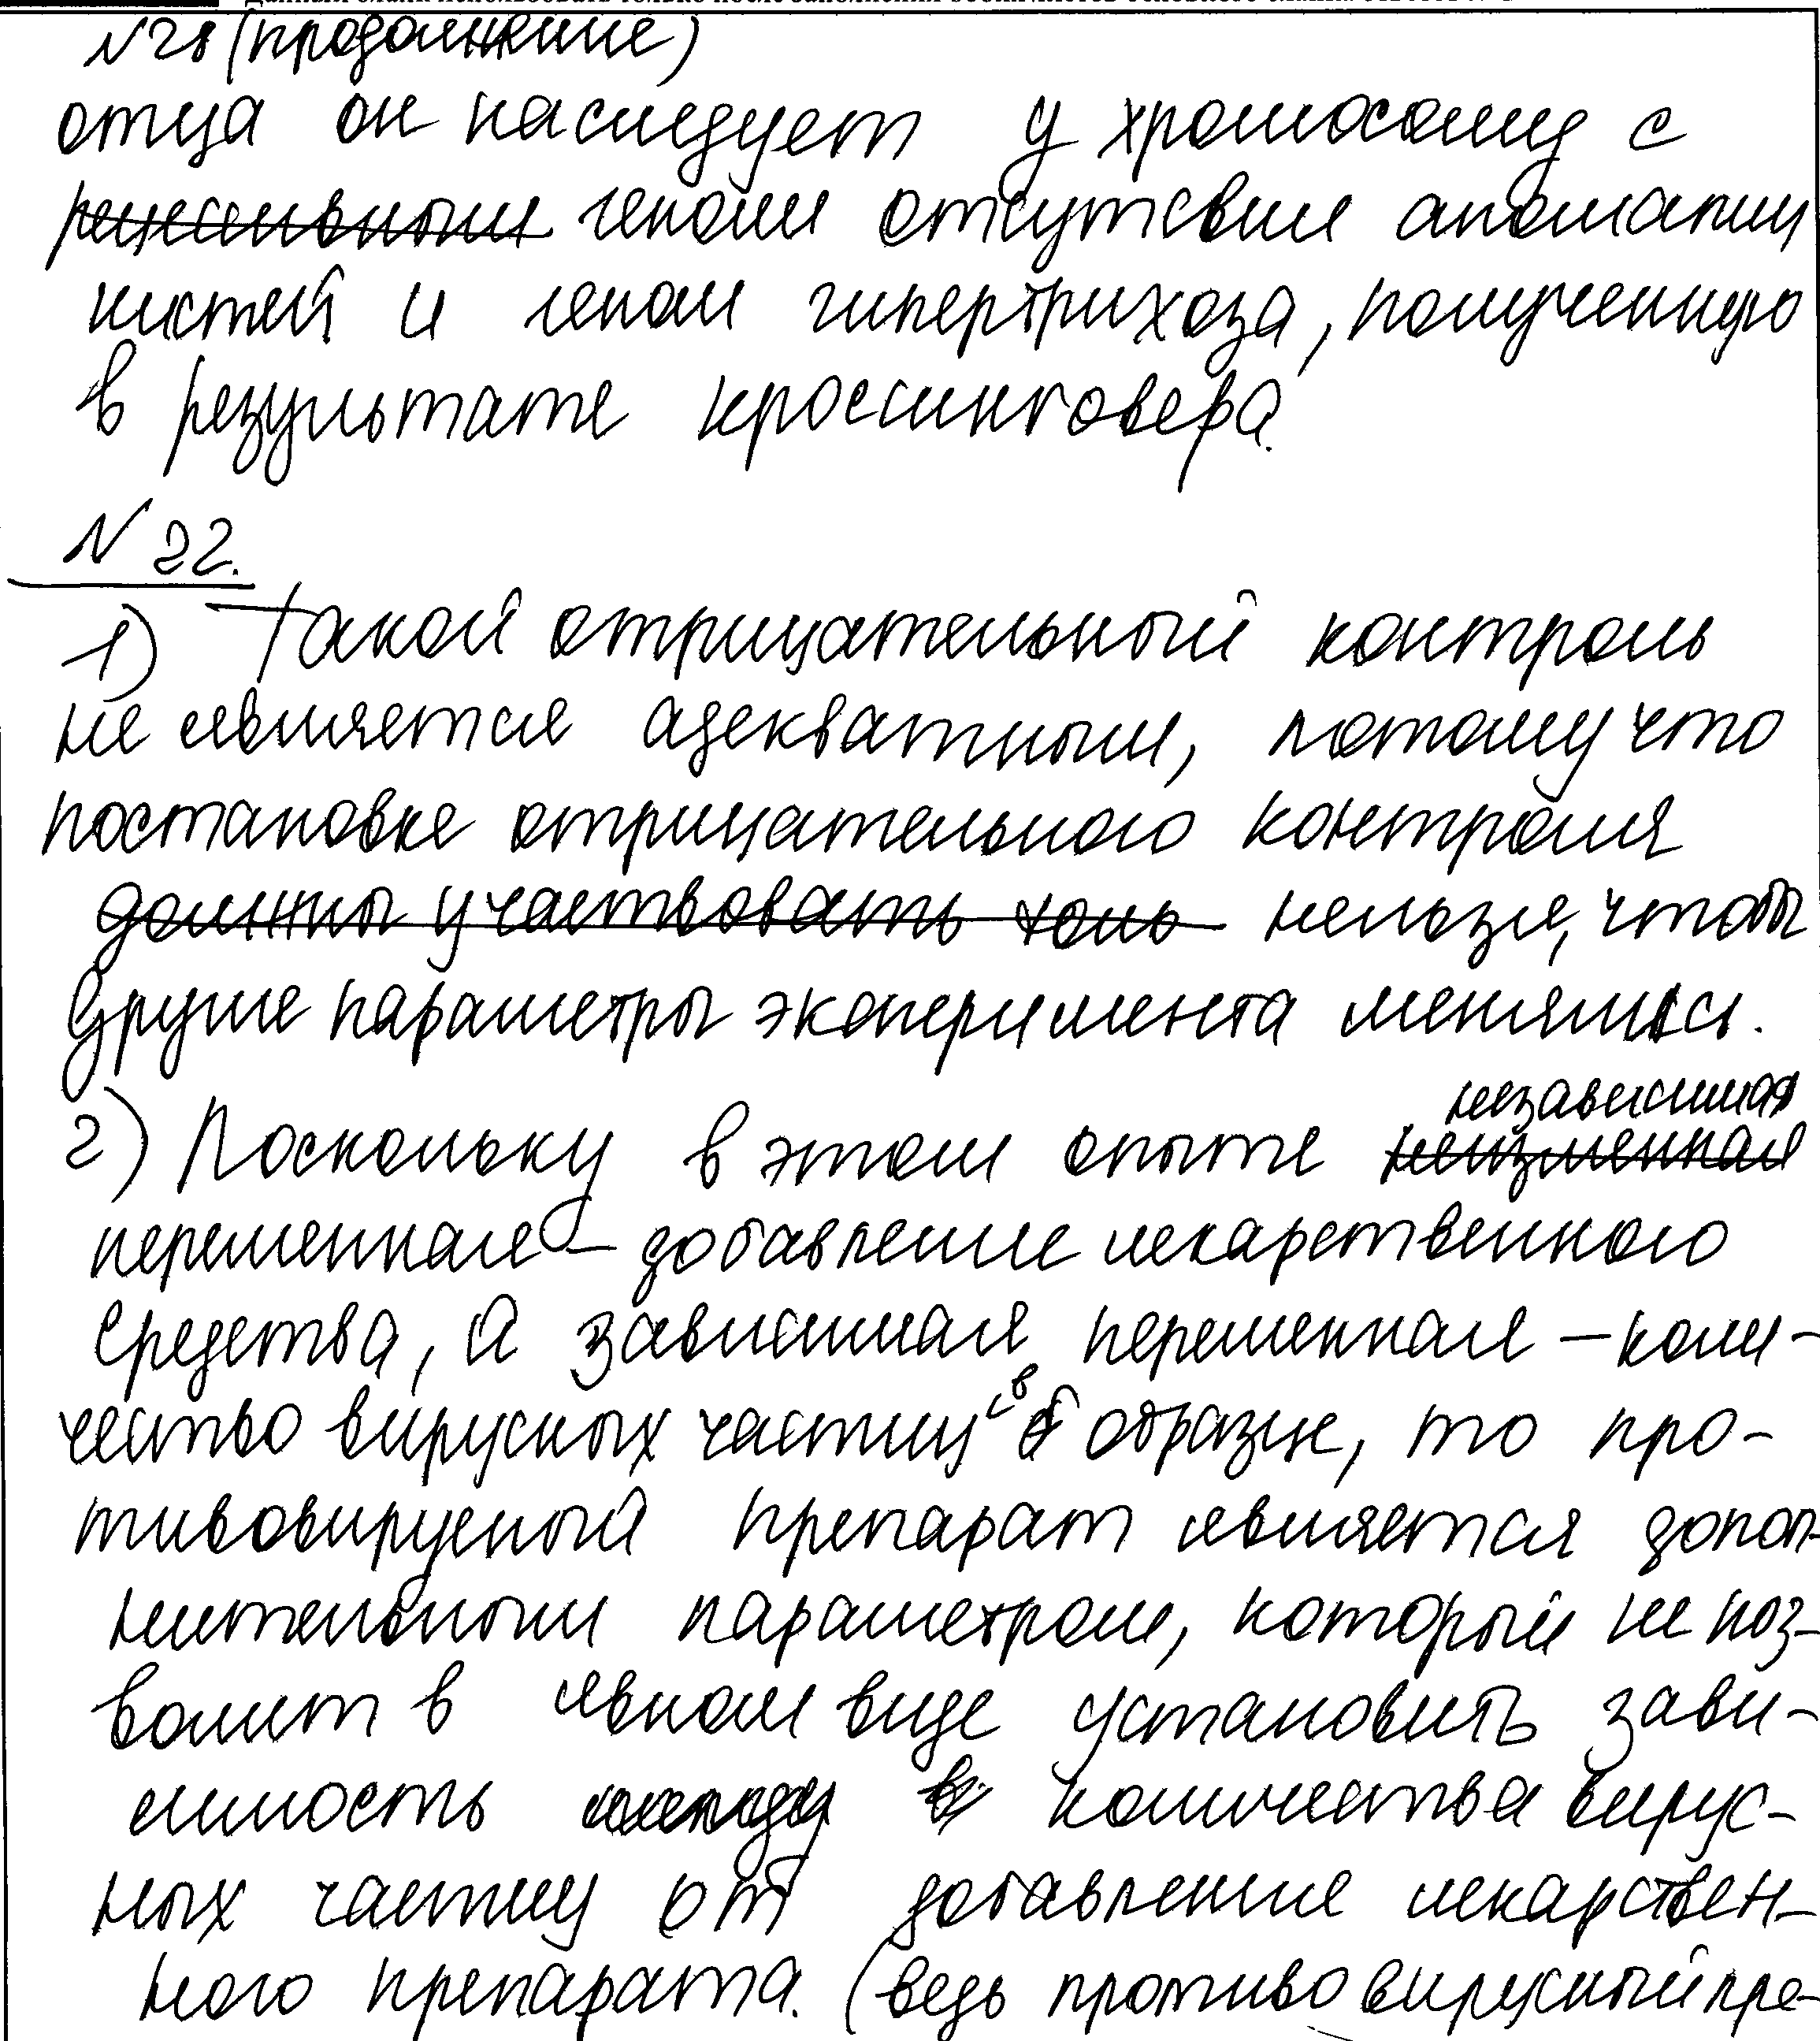 №28 (продолжение)
отца он наследует У хромосому с
рецессивным геном отсутсвия аномалии
кистей и геном гипертрихоза, полученную
в результате кроссинговера.
№ 22.
1) Такой отрицательный контроль
не является адекватным, потому что
постановке отрицательного контроля
должны участвовать толь нельзя, чтобы
другие параметры экоперимента менялись.
независимая
2) Поскольку в этом опыте неизменная
переменная – добавление лекарственного
средства, а зависимая переменная – коли-
чество вирусных частиц в образце, то про-
тивовирусный препарат является допол-
нительным параметром, который не поз-
волит в явном виде установить зави-
симость между количества вирус-
ных частиц от добавления лекарствен-
ного препарата. (ведь противовирусный пре-